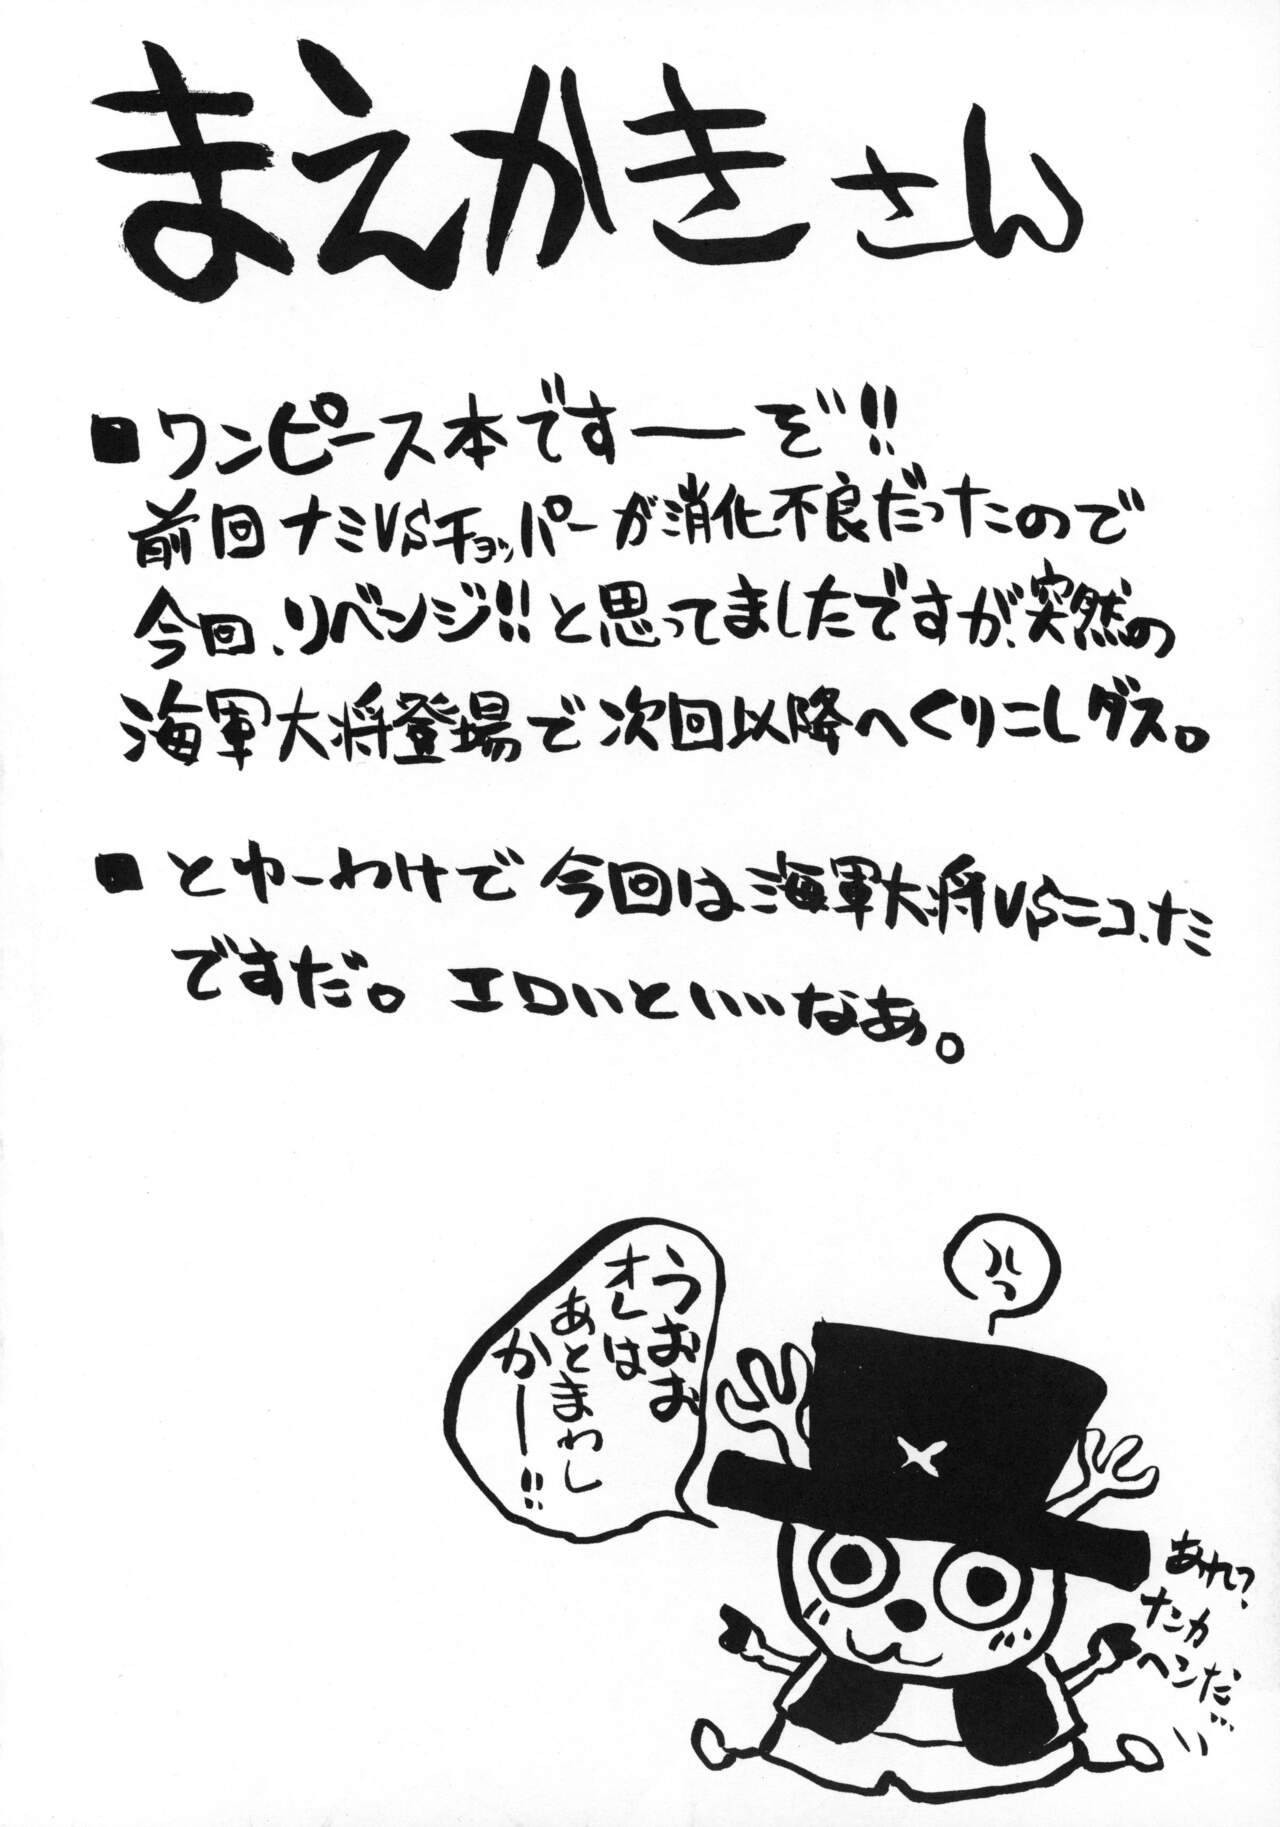 まえがきさん
■ワンピース本ですーーぞ!!
前回ナミVSチョッパーが消化不良だったので
今回、リベンジ!!と思ってましたですが、突然の
海軍大将登場で次回以降へくりこしダス。
■とゆーわけで今回は、海軍大将VSニコ、ナミ
ですだ。エロいといいなあ。
うおお
オレは
あとまわし
かー!!
あれ?
ナンカ
ヘンだ…
い